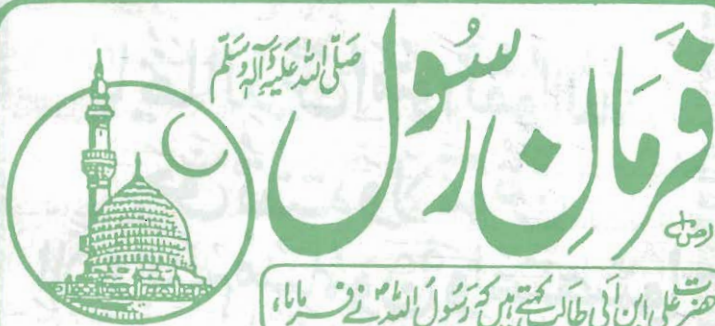 فرمانِ رسول صَلَّی اللہ عَلَیْہِ وَآلِہٖ وَسَلَّم
حضرت علی ابن ابی طالب کہتے ہیں کہ رَسُولُ اللہ نے فرمایا،